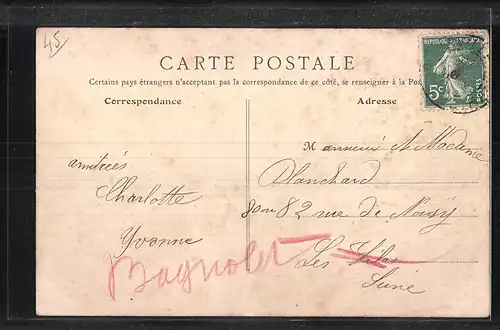 45
CARTE POSTALE
Certains pays étrangers n'acceptant pas la correspondance de ce côté, se renseigner à la Pos
Correspondance
Adresse
REPUBLIQUE FRANÇAISE
5c
POSTES
Monsieur et Madame
amitiés
Blanchard
Charlotte
80 ou 82 rue de Noisy
Yvonne
Les Lilas
Bagnolet
Seine